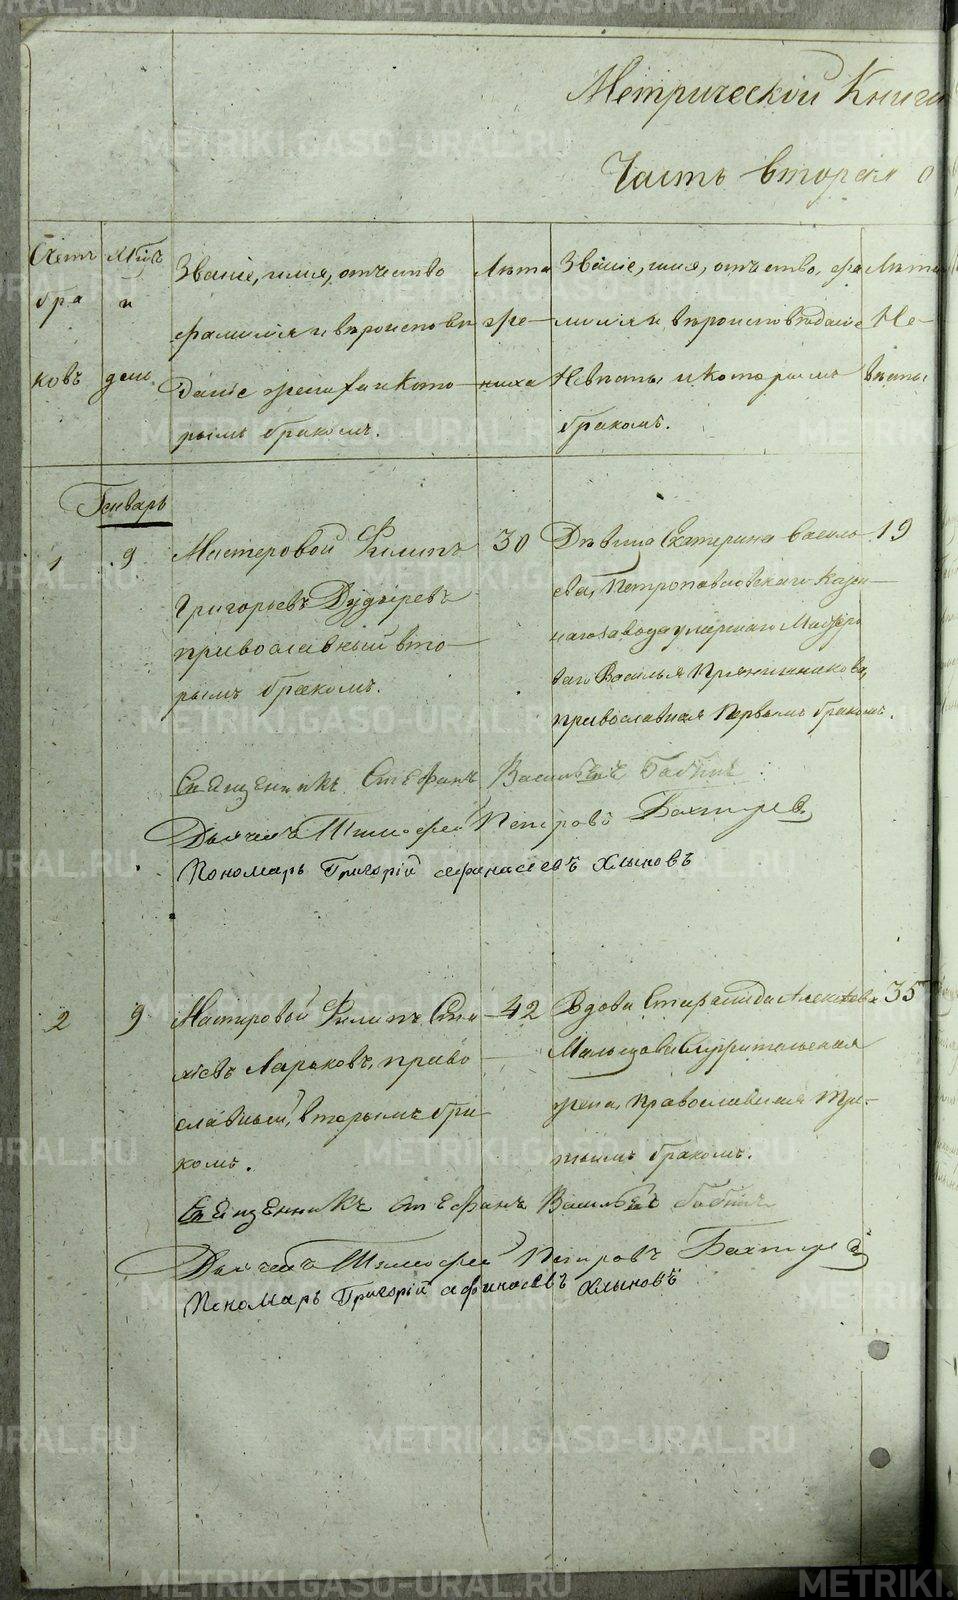 Метрической Книги
Часть вторая о
Счетъ
бра
ковъ
М-цъ
и
день.
Званіе, имя, отчество
фамилія и вѣроиспове
даніе жениха и кото-
рымъ бракомъ.
Лѣта
же-
ниха
Званіе, имя, отчество, фа
милія и вѣроисповѣданіе
Невѣсты и которымъ
бракомъ.
Лѣта
Не-
вѣсты
Генварь
1
9
Мастеровой Филипъ
Григорьевъ Дудыревъ
православный вто-
рымъ бракомъ.
30
Дѣвица Екатерина Василь
ева, Петропавловскаго Казен-
наго завода умершаго Мастеро
ваго Василья Пряничникова,
православная первымъ бракомъ.
19
Священникъ Стефанъ Васильевъ Бабинъ
Дьячекъ Тимофей Петровъ Бахтирев
Пономарь Григорій Афанасьевъ Хлыновъ
2
9
Мастеровой Филипъ
Ларьковъ, право
славный, вторымъ бра
комъ.
42
Вдова Старалида Алексѣева
Мальцова Служительская
жена, Православная тре-
тьимъ бракомъ.
35
Священникъ Стефанъ Васильевъ Бабинъ
Дьячекъ Тимофей Петровъ Бахтирев
Пономарь Григорій Афанасьевъ Хлыновъ
METRIKI.GASO-URAL.RU